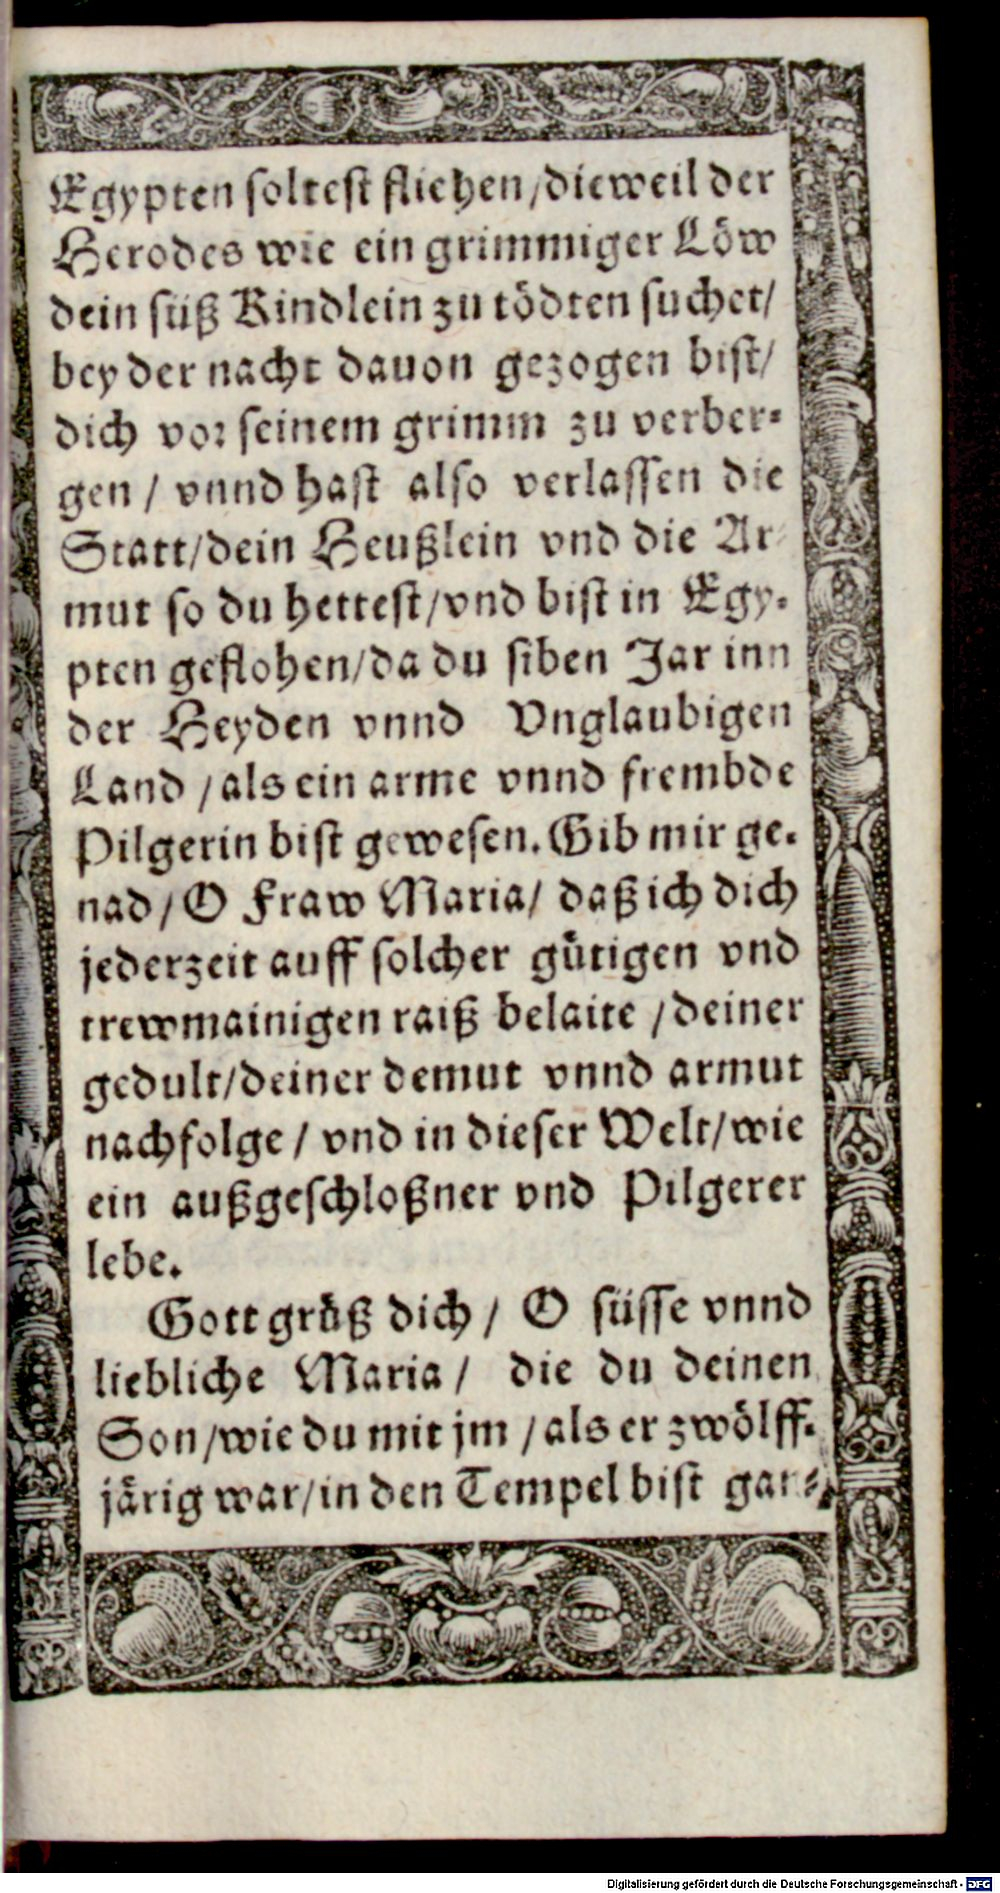 Egypten soltest fliehen/dieweil der
Herodes wie ein grimmiger Löw
dein süß Kindlein zu tödten suchet/
bey der nacht dauon gezogen bist/
dich vor seinem grimm zu verber-
gen / vnnd hast also verlassen die
Statt/dein Heußlein vnd die Ar-
mut so du hettest/vnd bist in Egy-
pten geflohen/da du siben Jar inn
der Heyden vnnd Vnglaubigen
Land / als ein arme vnnd frembde
Pilgerin bist gewesen. Gib mir ge-
nad / O Fraw Maria/ daß ich dich
jederzeit auff solcher gütigen vnd
trewmainigen raiß belaite / deiner
gedult/deiner demut vnnd armut
nachfolge / vnd in dieser Welt/wie
ein außgeschloßner vnd Pilgerer
lebe.
Gott grüß dich / O süsse vnnd
liebliche Maria / die du deinen
Son/wie du mit jm / als er zwölff-
järig war/in den Tempel bist gan-
Digitalisierung gefördert durch die Deutsche Forschungsgemeinschaft - DFG